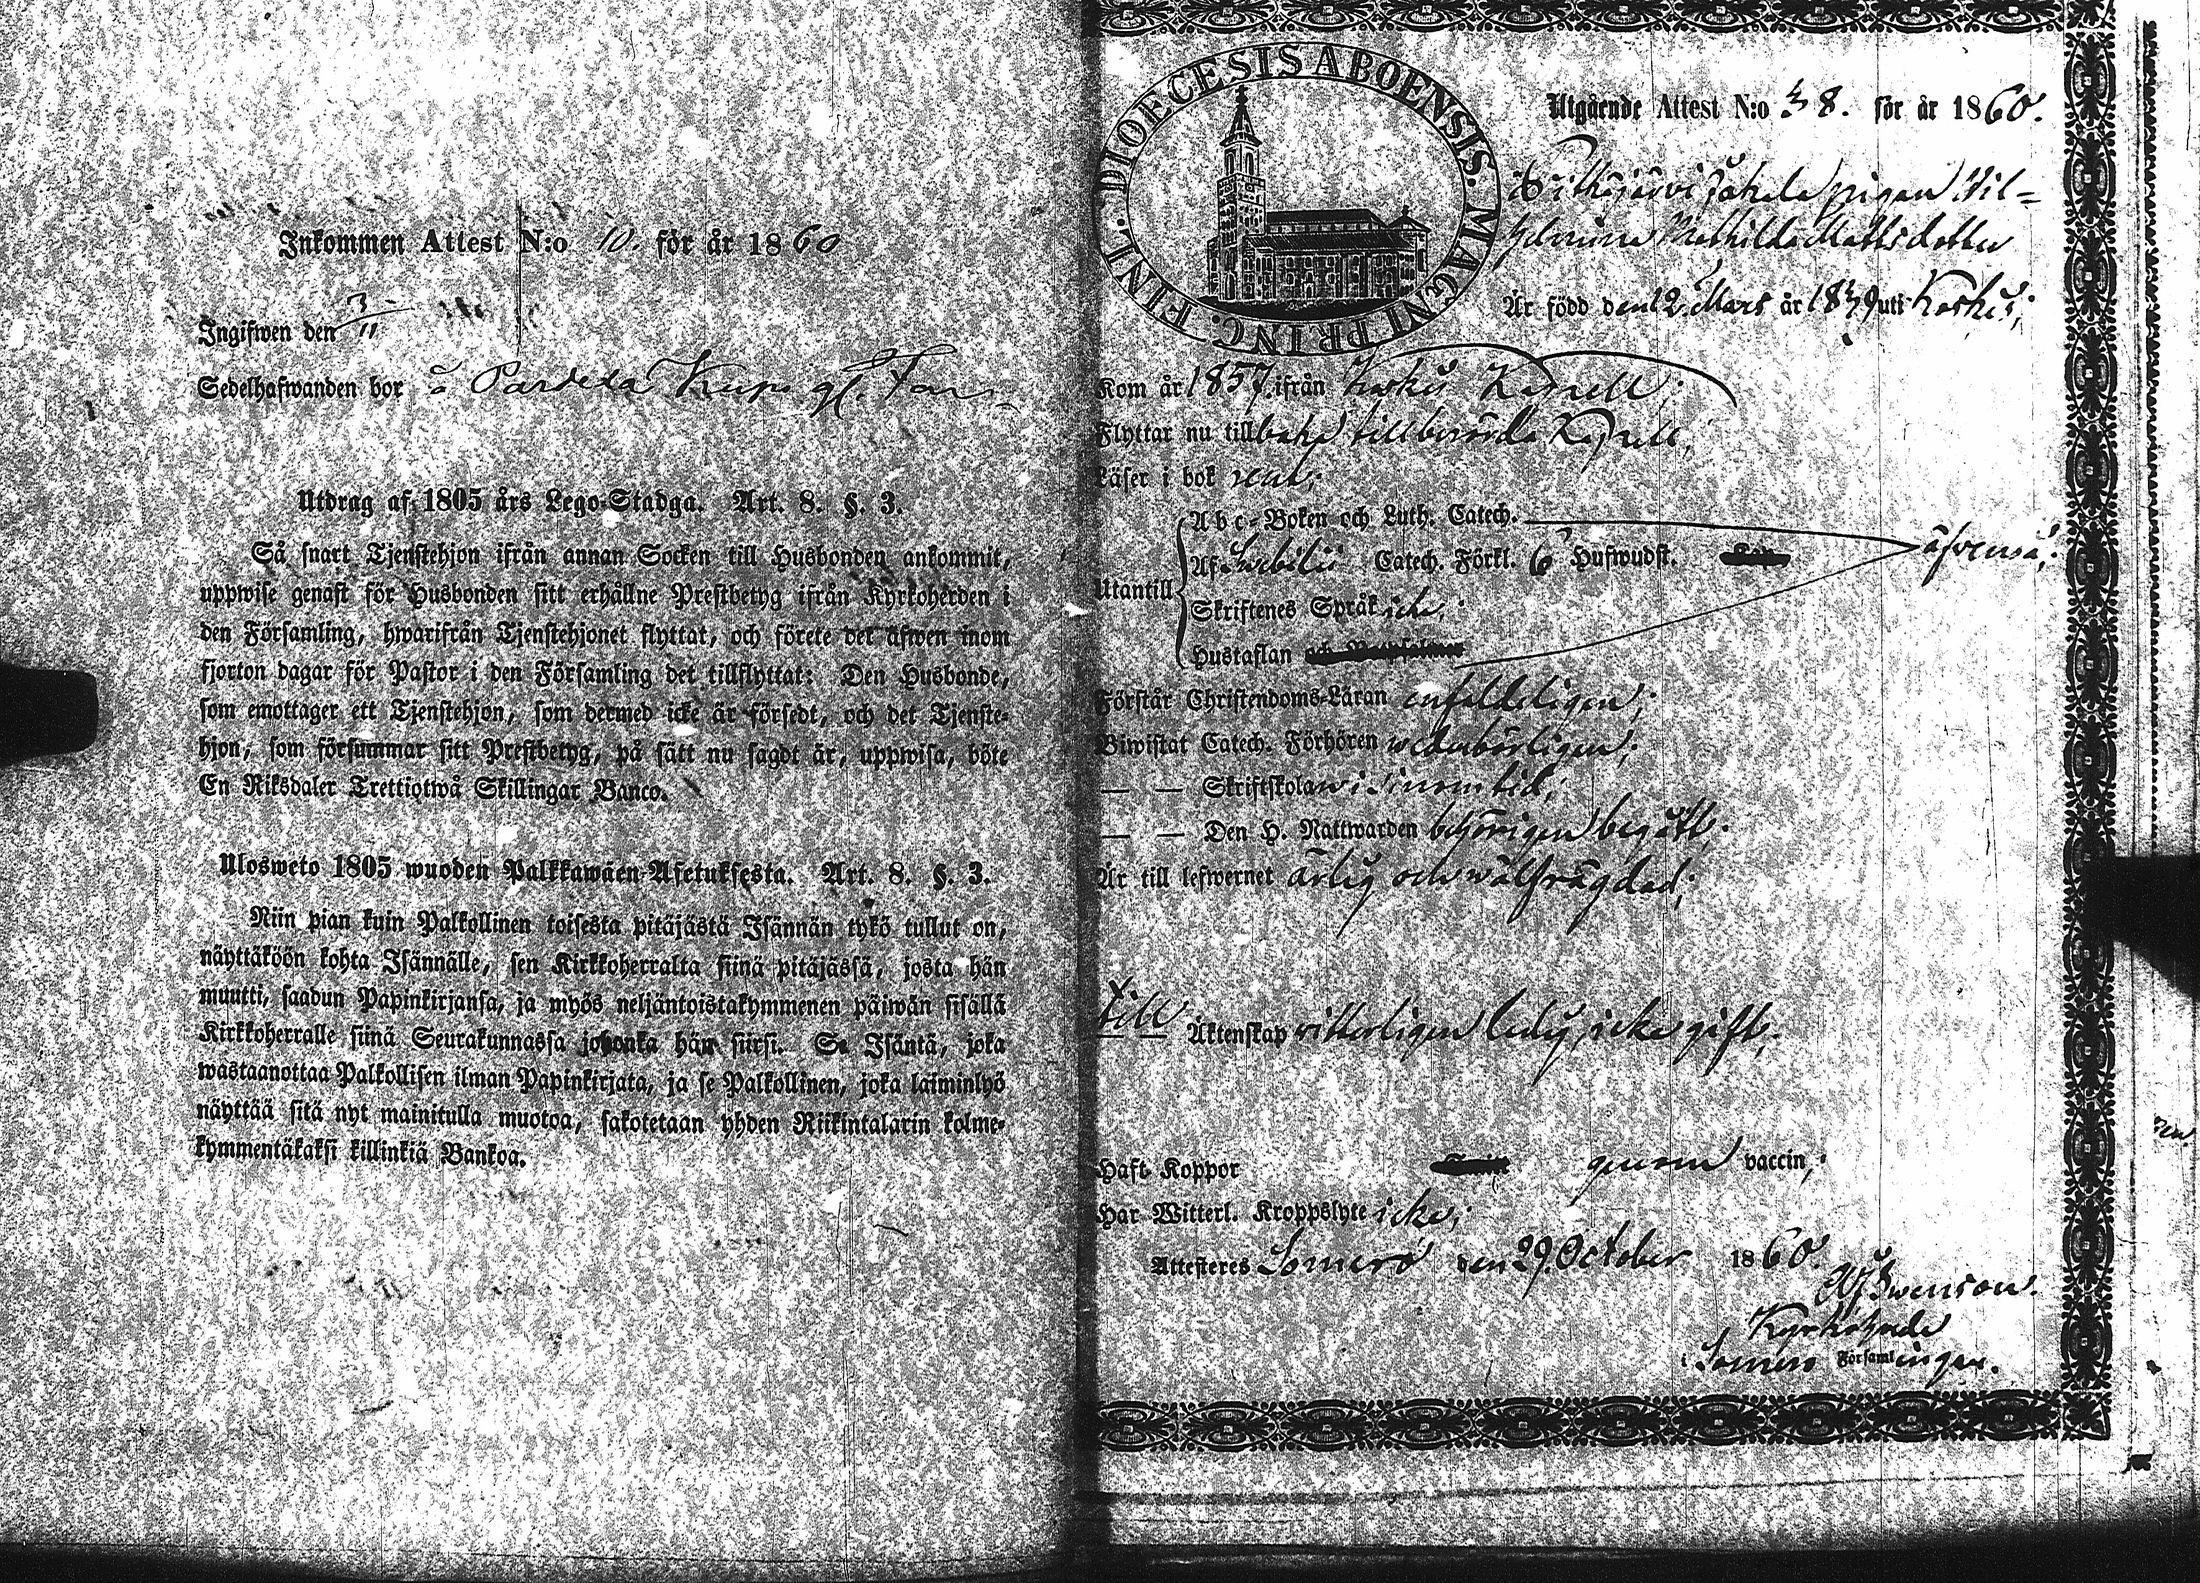 Inkommen Attest N:o 10. för år 1860
Ingifwen den 3/11
Sedelhafwanden bor å
Utdrag af 1805 års Lego-Stadga. Art. 8. §. 3.
Så snart Tjenstehjon ifrån annan Socken till Husbonden ankommit,
uppwise genast för Husbonden sitt erhållne Prestbetyg ifrån Kyrkoherden i
den Församling, hwarifrån Tjenstehjonet flyttat, och förete det äfwen inom
fjorton dagar för Pastor i den Församling det tillflyttat: Den Husbonde,
som emottager ett Tjenstehjon, som dermed icke är försedt, och det Tjenste-
hjon, som försummar sitt Prestbetyg, på sätt nu sagdt är, uppwisa, böte
En Riksdaler Trettiotwå Skillingar Banco.
Ulosweto 1805 wuoden Palkkawäen-Asetuksesta. Art. 8. §. 3.
Niin pian kuin Palkollinen toisesta pitäjästä Isännän tykö tullut on,
näyttäköön kohta Isännälle, sen Kirkkoherralta siinä pitäjässä, josta hän
muutti, saadun Papinkirjansa, ja myös neljäntoistakymmenen päiwän sisällä
Kirkkoherralle siinä Seurakunnassa johonka hän siirsi. Se Isäntä, joka
wastaanottaa Palkollisen ilman Papinkirjata, ja se Palkollinen, joka laiminlyö
näyttää sitä nyt mainitulla muotoa, sakotetaan yhden Riikintalarin kolme-
kymmentäkaksi killinkiä Bankoa.
FINL. DIOECESIS ABOENSIS. MAGNI PRINC.
Utgående Attest N:o 38. för år 1860.
pigan Wil-
helmina Mathilda Mattsdotter
Är född den 12 Mars år 1839 uti Koskis;
Kom år 1857. ifrån Koskis Kapell;
Flyttar nu tillbaka till berörda Kapell;
Läser i bok rent;
Abc-Boken och Luth. Catech.
Utantill Af Swebilii Catech. Förkl. 6 Hufwudst. äfvenså;
Skriftenes Språk icke;
Hustaflan
Förstår Christendoms-Läran enfaldeligen;
Biwistat Catech. Förhören wederbörligen;
— — Skriftskolan i sinom tid;
— — Den H. Nattwarden behörigen begått;
Är till lefwernet ärlig och wälfrägdad;
till Äktenskap vitterligen ledig, icke gift;
Haft Koppor genom vaccin;
Har Witterl. Kroppslyte icke;
Attesteres Somero den 29. October 1860.
Swenson.
Kyrkoherde
i Somero Församlingar.